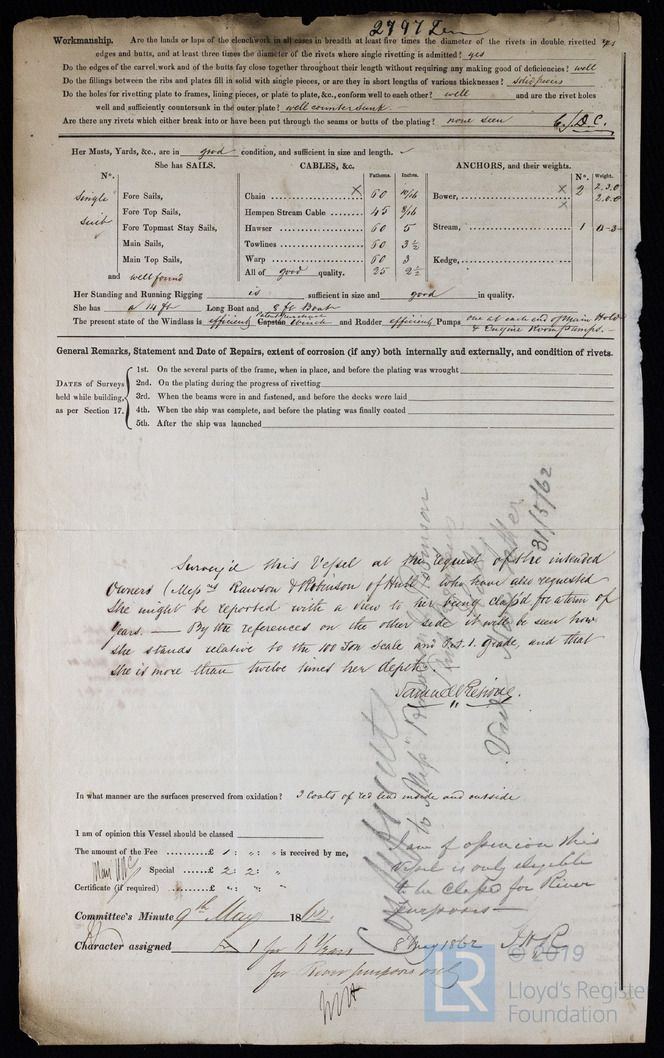 2797 Iron
Workmanship. Are the lands or laps of the clenchwork in all cases in breadth at least five times the diameter of the rivets in double rivetted yes
edges and butts, and at least three times the diameter of the rivets where single rivetting is admitted? yes
Do the edges of the carvel work and of the butts fay close together throughout their length without requiring any making good of deficiencies? well
Do the fillings between the ribs and plates fill in solid with single pieces, or are they in short lengths of various thicknesses? solid pieces
Do the holes for rivetting plate to frames, lining pieces, or plate to plate, &c., conform well to each other? well and are the rivet holes
well and sufficiently countersunk in the outer plate? well counter sunk
Are there any rivets which either break into or have been put through the seams or butts of the plating? none seen
Her Masts, Yards, &c., are in good condition, and sufficient in size and length.
She has SAILS. CABLES, &c. ANCHORS, and their weights.
N°. Fathoms. Inches. N°. Weight.
Single Fore Sails, Chain 60 10/16 Bower, 2 2.3.0
suit Fore Top Sails, Hempen Stream Cable 45 8/16 2.0.0
Fore Topmast Stay Sails, Hawser 60 5 Stream, 1
Main Sails, Towlines 60 3 1/2
Main Top Sails, Warp 60 3 Kedge,
and well found All of good quality. 25 2 1/2
Her Standing and Running Rigging is sufficient in size and good in quality.
She has a 14 ft Long Boat and 8 ft Boat
The present state of the Windlass is efficient Capstan winch and Rudder efficient Pumps one at each end of Main Hold
& Engine Room pumps.
General Remarks, Statement and Date of Repairs, extent of corrosion (if any) both internally and externally, and condition of rivets.
DATES of Surveys held while building, as per Section 17.
1st. On the several parts of the frame, when in place, and before the plating was wrought
2nd. On the plating during the progress of rivetting
3rd. When the beams were in and fastened, and before the decks were laid
4th. When the ship was complete, and before the plating was finally coated
5th. After the ship was launched
31/5/62
Survey'd this Vessel at the request of the intended
Owners (Messrs Rawson & Robinson of Hull) who have also requested
She might be reported with a view to her being class'd for a term of
Years. — By the references on the other side it will be seen how
she stands relative to the 100 Ton Scale and No. 1. grade, and that
She is more than twelve times her depth.
In what manner are the surfaces preserved from oxidation? 3 coats of red lead inside and outside
I am of opinion this Vessel should be classed
The amount of the Fee £ 1 : " : " is received by me,
Special £ 2 : 2 : "
Certificate (if required) £ " : " : "
I am of opinion this
Vessel is only eligible
to be classed for River
purposes
8 May 1862
Committee's Minute 9th May 1862
Character assigned 1 for 6 Years
for River purposes only
LR
© 2019
Lloyd's Register
Foundation